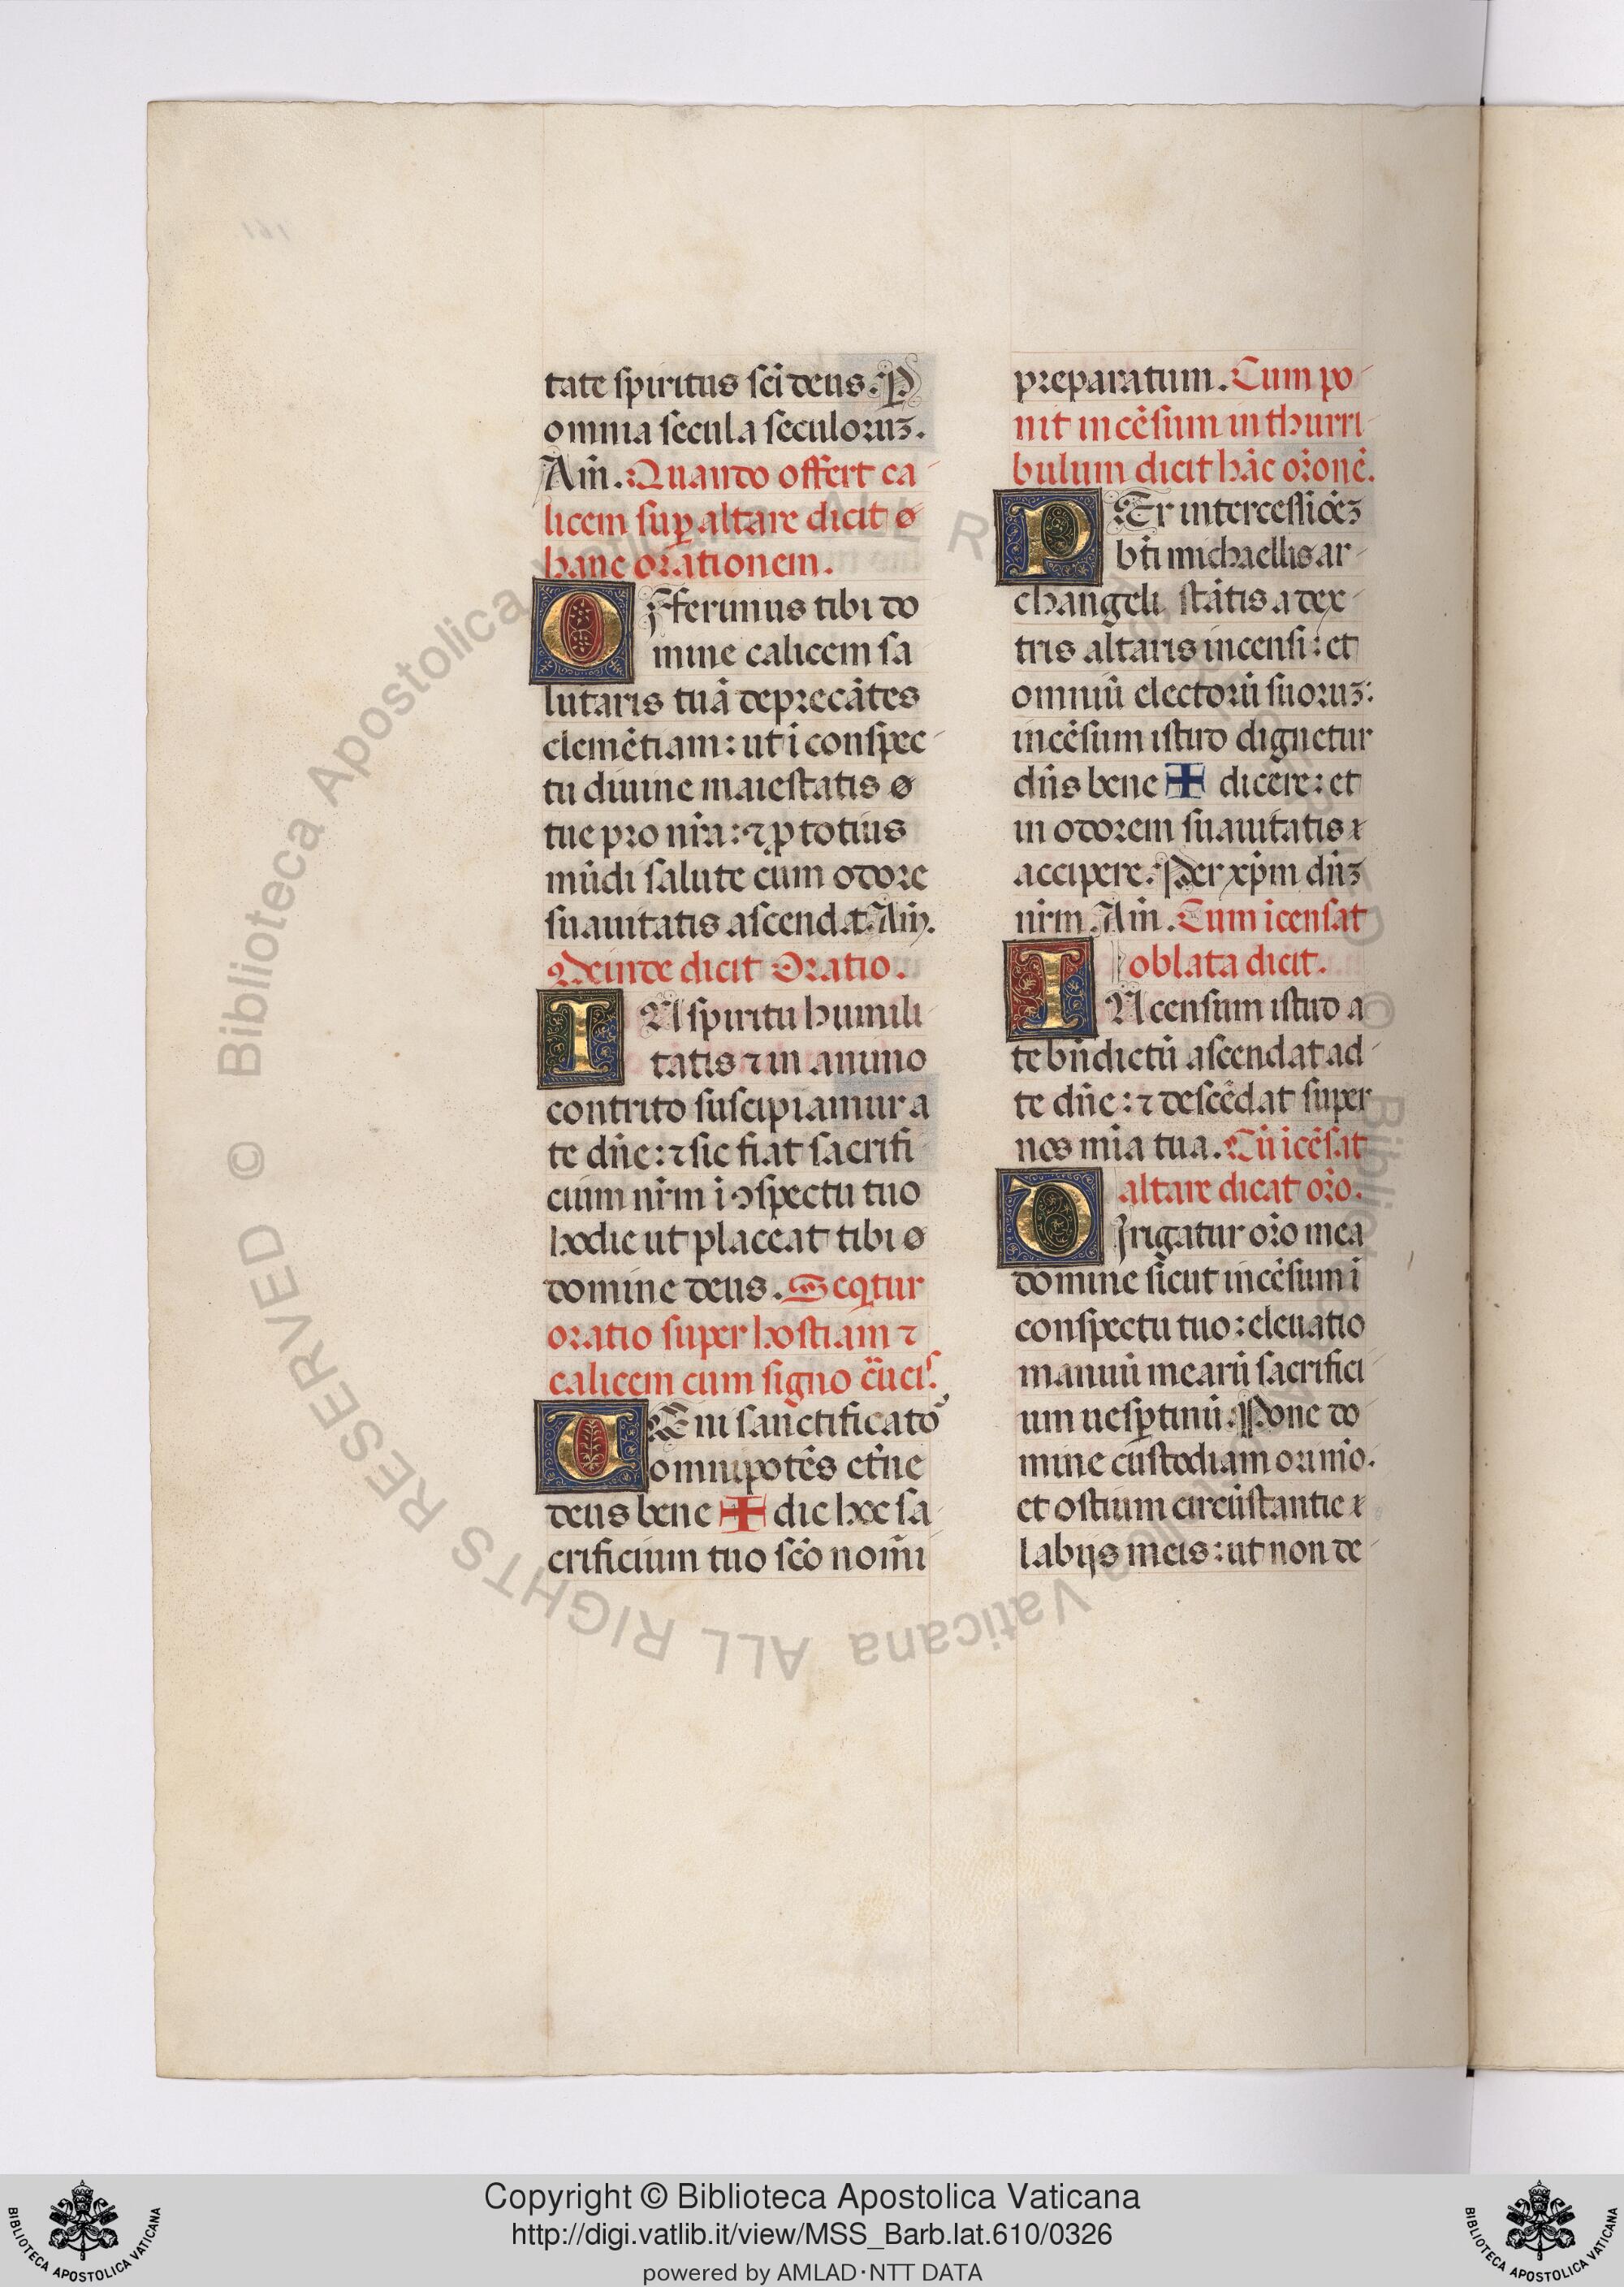 tate spiritus sc̃i deus. P̱
omnia secula seculoruꝫ.
Am̃. Quando offert ca
licem suꝑ altare dicit ø
hanc orationem.
Offerimus tibi do
mine calicem sa
lutaris tuã deprecãtes
clemẽtiam: ut ĩ conspec
tu diuine maiestatis ø
tue pro nr̃a: ⁊ ꝓ totius
mũdi salute cum odore
suauitatis ascendat. Am̃.
Deinde dicit Oratio.
IN spiritu humili
tatis ⁊ in animo
contrito suscipiamur a
te dñe: ⁊ sic fiat sacrifi
cium nr̃m ĩ ꝯspectu tuo
hodie ut placeat tibi ø
domine deus. Seqͥtur
oratio super hostiam ⁊
calicem cum signo cͬucis.
UEni sanctificatoʼ
omnipotẽs et̃ne
deus bene ✠ dic hoc sa
crificium tuo sc̃o nomĩ
preparatum. Cum po
nit incẽsum in thurri
bulum dicit hãc or̃onẽ.
PEr intercessiõeꝫ
bt̃i michaellis ar
changeli stãtis a dex
tris altaris incensi: et
omniũ electorũ suoruꝫ:
incẽsum istud dignetur
dñs bene ✠ dicere: et
in odorem suauitatis x
accipere. Per xp̃m dñꝫ
nr̃m. Am̃. Cum ĩcensat
oblata dicit.
INcensum istud a
te bñdictũ ascendat ad
te dñe: ⁊ descẽdat super
nos mĩa tua. Cũ ĩcẽsat
altare dicat or̃o.
Dirigatur or̃o mea
domine sicut incẽsum ĩ
conspectu tuo: eleuatio
manuũ mearũ sacrifici
um uesꝑtinũ. Pone do
mine custodiam ori m̃o.
et ostium circũstantie x
labijs meis: ut non de
© Biblioteca Apostolica Vaticana ALL RIGHTS RESERVED
Copyright © Biblioteca Apostolica Vaticana
http://digi.vatlib.it/view/MSS_Barb.lat.610/0326
powered by AMLAD·NTT DATA
BIBLIOTECA APOSTOLICA VATICANA
BIBLIOTECA APOSTOLICA VATICANA